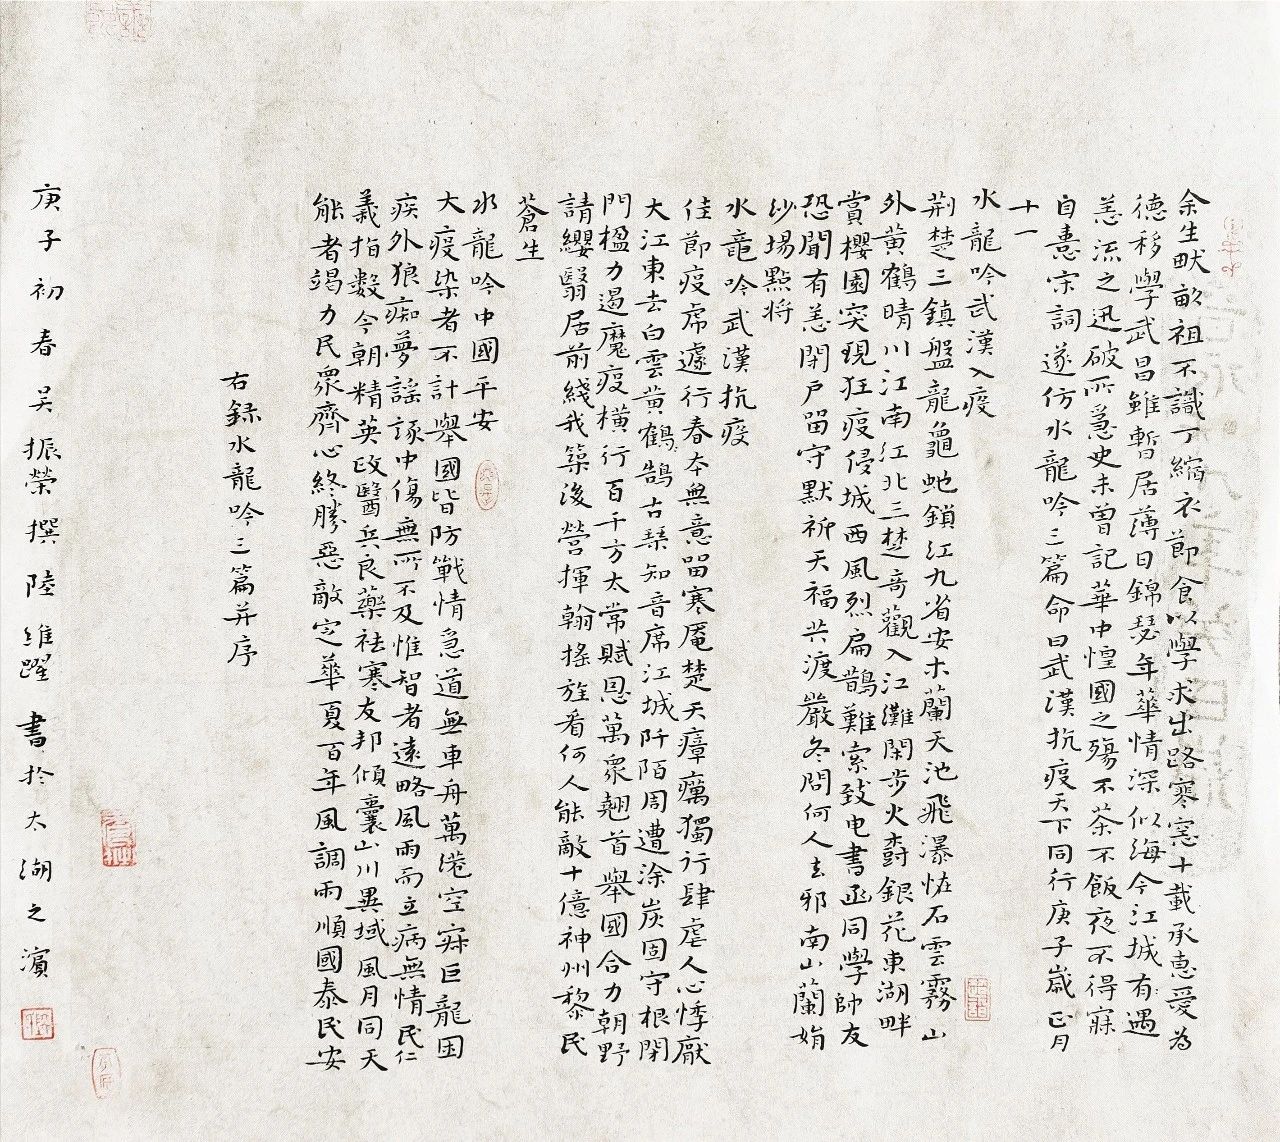 余生畎畝祖不識丁縮衣節食以學求出路寒窓十載承惠愛為
德移學武昌雖暫居薄日錦瑟年華情深似海今江城有遇
恙流之迅破所急史未曾記華中惶國之殤不茶不飯夜不得寐
自憙宋詞遂仿水龍吟三篇命曰武漢抗疫天下同行庚子歲正月
十一
水龍吟武漢入疫
荆楚三鎮盤龍龜虵鎖江九省安木蘭天池飛瀑恠石雲霧山
外黄鶴晴川江南江北三楚竒觀入江灘閑步火爵銀花東湖畔
賞櫻園突現狂疫侵城西風烈扁鵲難索致电書函同學帥友
恐聞有恙閉戶留守默祈天福共渡嚴冬問何人去邪南山蘭娟
沙場點將
水龍吟武漢抗疫
佳節疫虐遽行春本無意留寒魘楚天瘴癘獨行肆虐人心悸厭
大江東去白雲黄鶴鵠古琹知音席江城阡陌周遭涂炭固守根閉
門楹力遏魔疫横行百千方太常賦恩萬衆翹首舉國合力朝野
請纓翳居前綫我築後營揮翰搖旌看何人能敵十億神州黎民
蒼生
水龍吟中國平安
大疫染者不計舉國皆防戰情急道無車舟萬港空寐巨龍困
疾外狼痴夢謡諑中傷無所不及惟智者遠略風雨而立病無情民仁
義指數今朝精英政醫兵良藥袪寒友邦傾囊山川異域風月同天
能者竭力民衆齊心終勝惡敵定華夏百年風調雨順國泰民安
右録水龍吟三篇并序
庚子初春吴振榮撰陸維躍書於太湖之濵